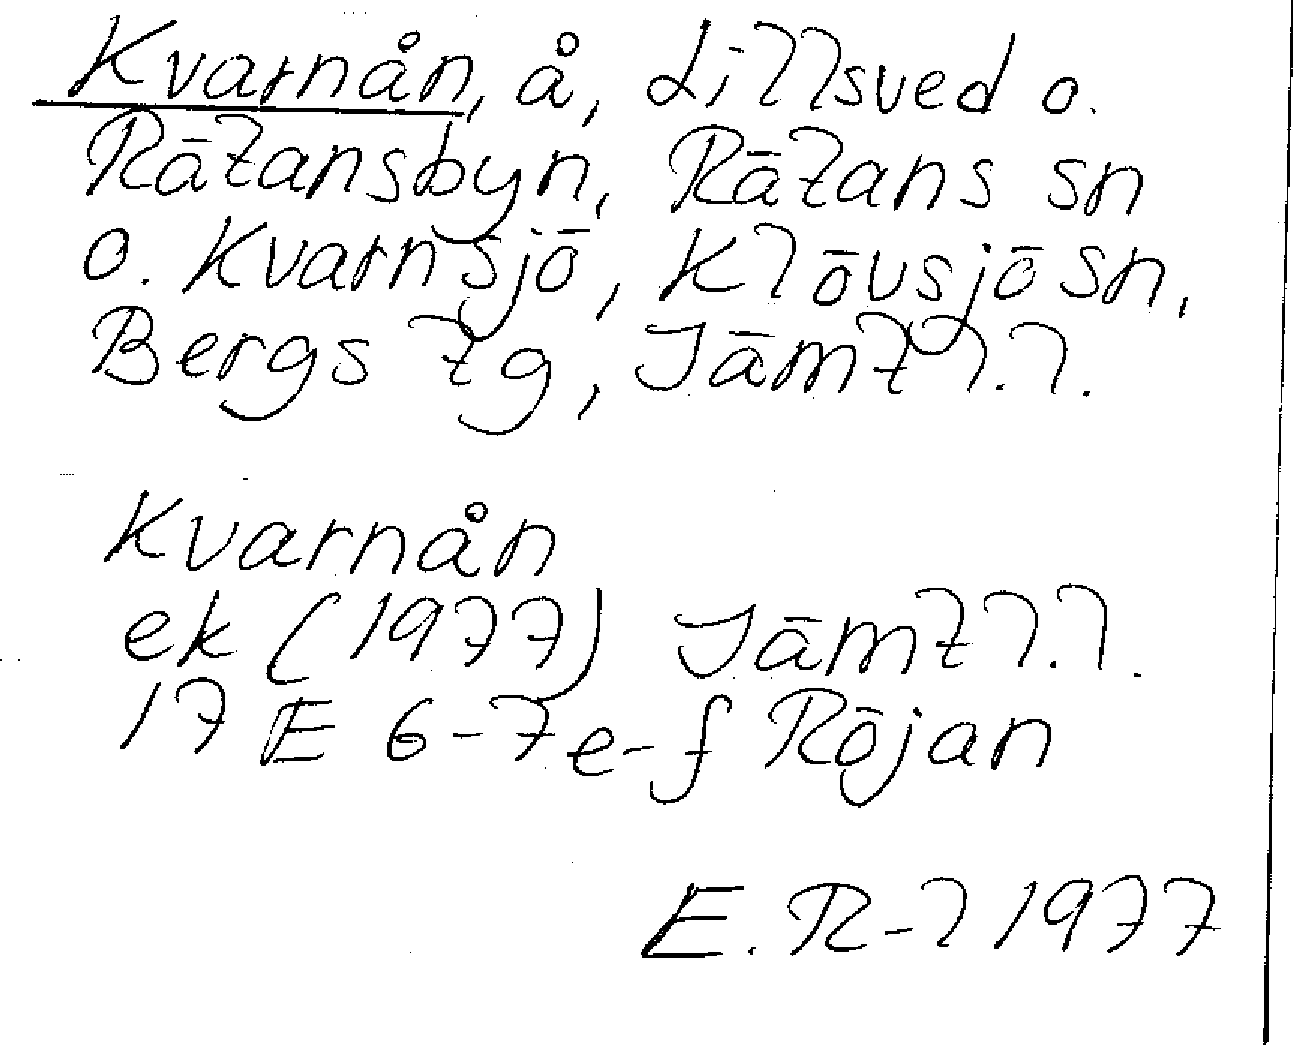 Kvarnån, å, Lillsved o.
Rätansbyn, Rätans sn
o. Kvarnsjö, Klövsjö sn,
Bergs tg, Jämtl.l.
Kvarnån
ek (1977) Jämtl.l.
17 E 6-7e-f Röjan
E. R-l 1977